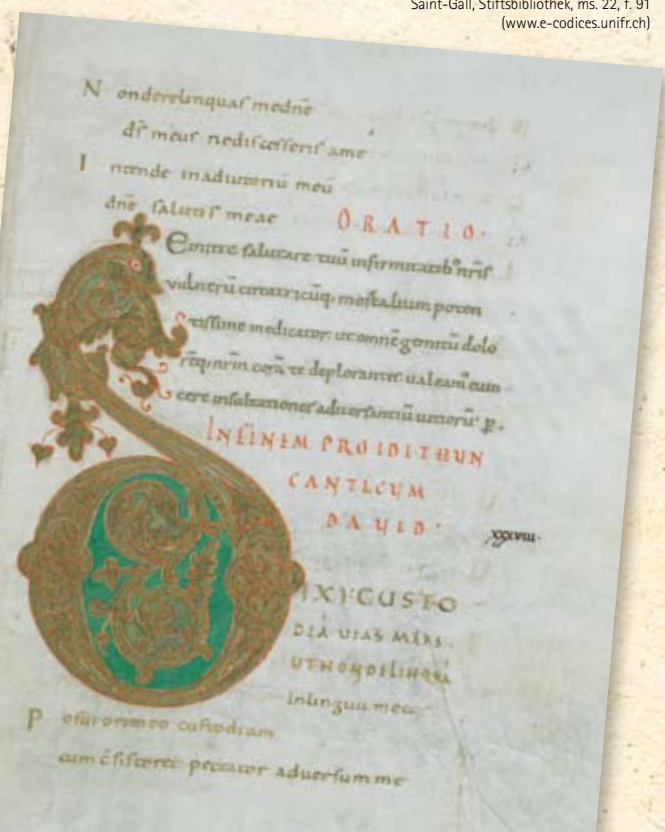 Saint-Gall, Stiftsbibliothek, ms. 22, f. 91
(www.e-codices.unifr.ch)
N onderelinquas me dnē
dś meus nediscesseris ame
I ntende inadiutoriū meū
dnē salutis meae ORATIO·
Emitte salutare tuū infirmitatib; nr̄is
vulnerū
tissime medicator. ut omnē gemitū dolo
te deplorantes ualeam eum
cere insultationes aduersantiū uitiorū p̄.
INFINEM PROIDITHUN
CANTICUM
DAUID·
xxxviii·
DIXI·CUSTO
DIĀ UIAS MEAS
UTNONDELINQUĀ
Inlingua mea
P osui orimeo custodiam
cum c̄sisteret peccator aduersum me